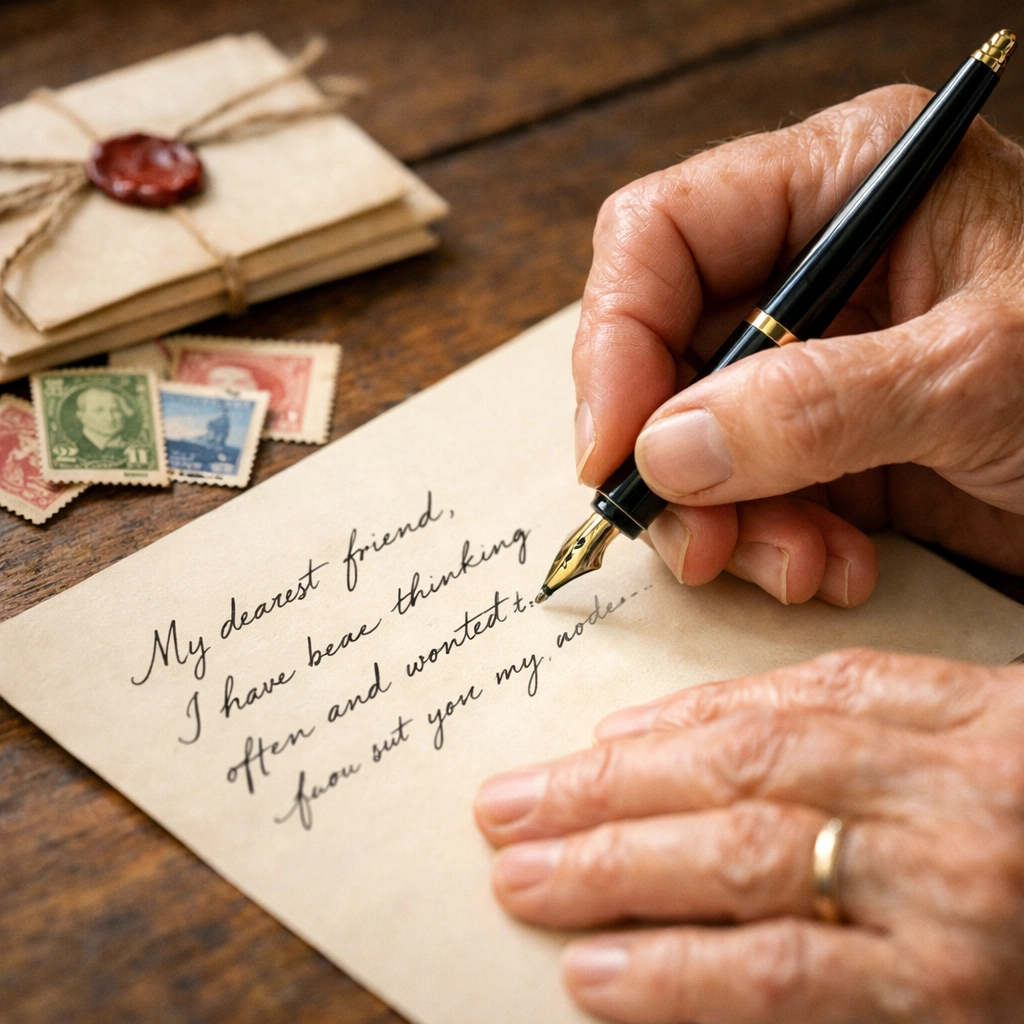 My dearest friend,
I have beae thinking
often and wonted t
fuou sut you my
2